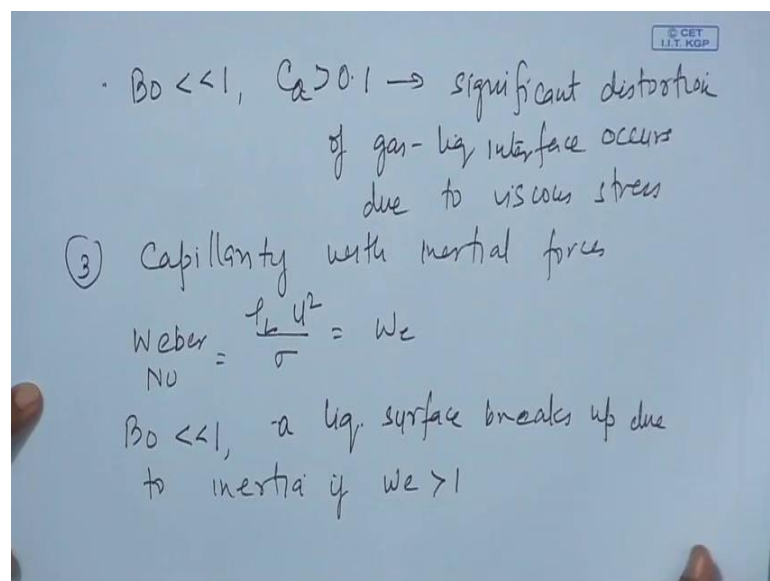 © CET
I.I.T. KGP
. Bo <<1, Ca>0.1 → significant distortion
of gas-liq interface occurs
due to viscous stress
③ Capillarity with inertial forces
Weber No = ρ_L U² / σ = We
Bo <<1, a liq. surface breaks up due
to inertia if We >1